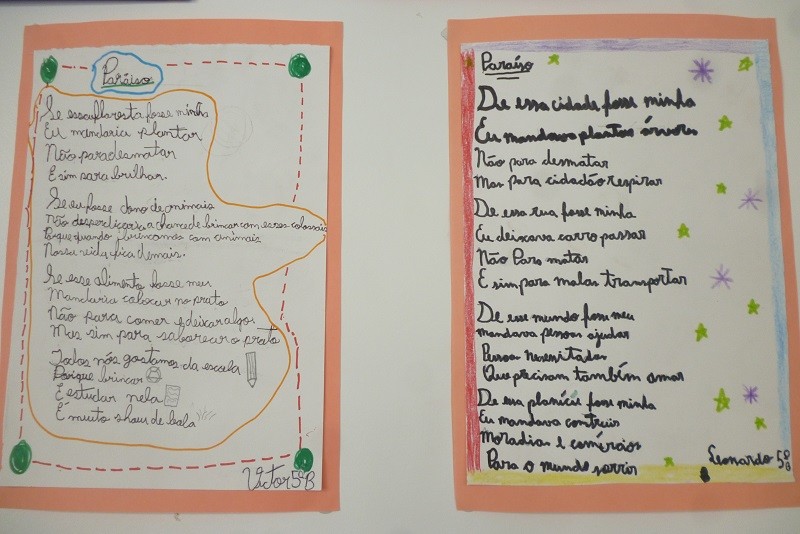 Paraíso
Se essa floresta fosse minha
Eu mandaria plantar
Não para desmatar
E sim para brilhar.
Se eu fosse dono de animais
Não desperdiçaria a chance de brincar com esses colossais
Porque quando brincamos com animais
Nossa vida fica demais.
Se esse alimento fosse meu
Mandaria colocar no prato
Não para comer e deixar algo
Mas sim para saborear o prato
Todos nós gostamos da escola
Porque brincar
E estudar nela
É muito show de bola
Victor 5ºB
Paraíso
De essa cidade fosse minha
Eu mandava plantar árvores
Não para desmatar
Mas para cidadão respirar
De essa rua fosse minha
Eu deixava carro passar
Não Para matar
E sim para malas transportar
De esse mundo fosse meu
mandava pessoas ajudar
Pessoas Necessitadas
Que precisam também amar
De essa planície fosse minha
Eu mandava construir
Moradias e comércios
Para o mundo sorrir
Leonardo 5ºB